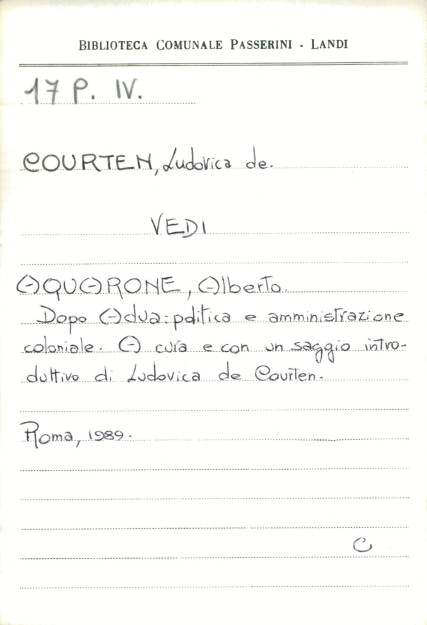 BIBLIOTECA COMUNALE PASSERINI - LANDI
17 P. IV.
COURTEN, Ludovica de.
VEDI
AQUARONE, Alberto.
Dopo Adua: politica e amministrazione
coloniale. A cura e con un saggio intro-
duttivo di Ludovica de Courten.
Roma, 1989.
C